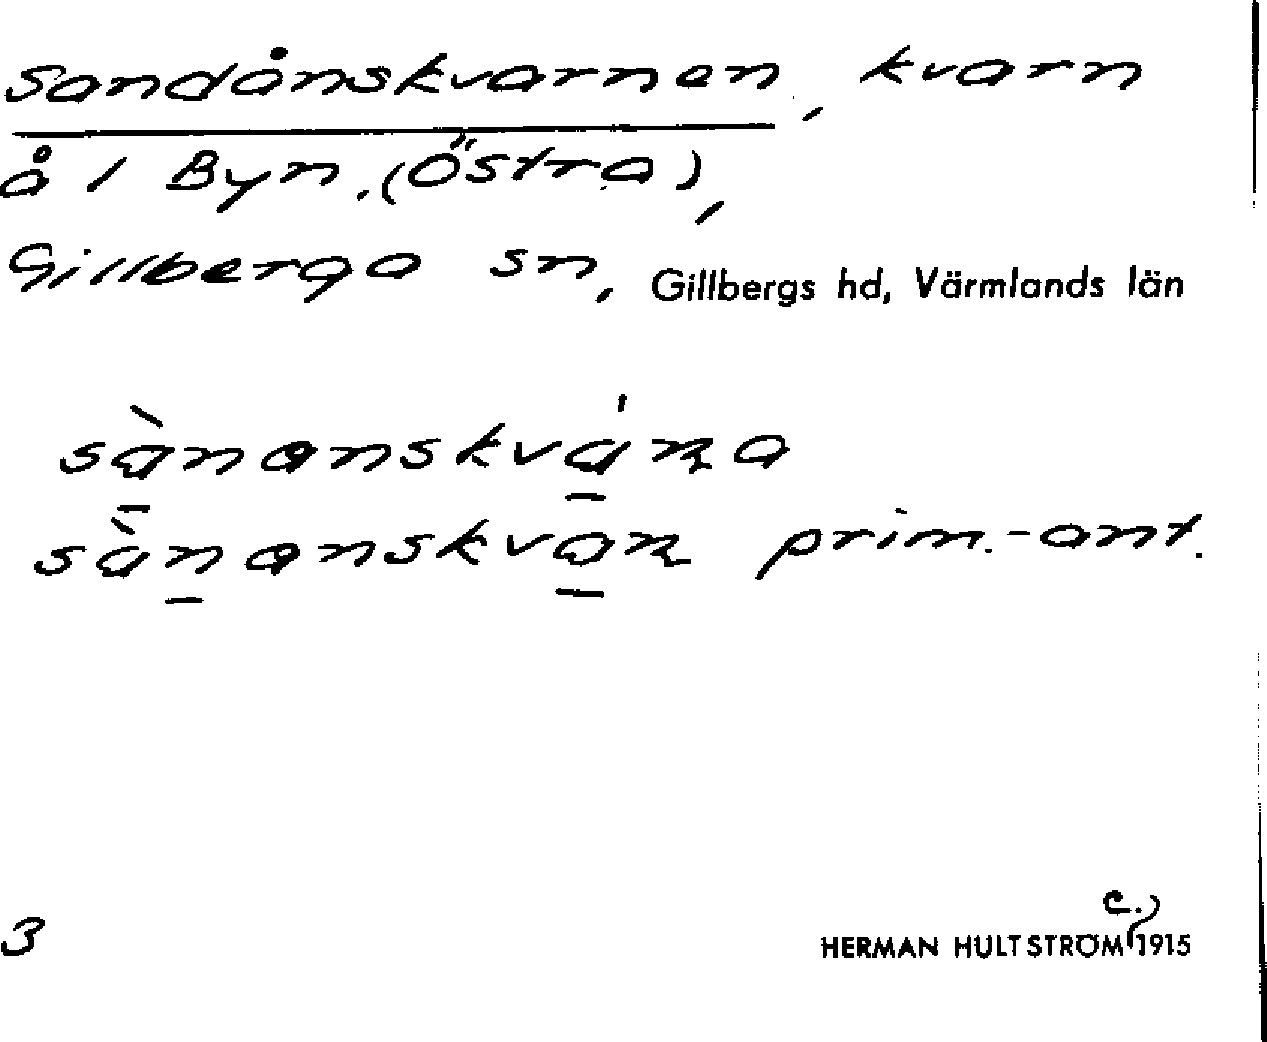 Sandånskvarnen, kvarn
å 1 Byn.(Östra),
Gillberga sn, Gillbergs hd, Värmlands län
sànanskvána
sànanskvan prim.-ant.
c.)
3 HERMAN HULTSTRÖM 1915